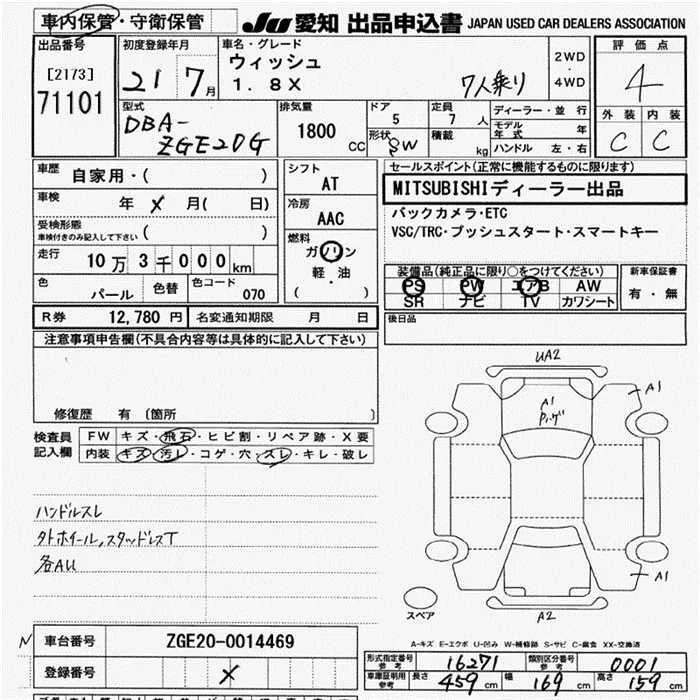 車内保管・守衛保管
JU 愛知 出品申込書 JAPAN USED CAR DEALERS ASSOCIATION
出品番号
[2173]
71101
初度登録年月
21 7月
車名・グレード
ウィッシュ
1.8X
7人乗り
2WD
・
4WD
評価点
4
外装 内装
C C
型式
DBA-
ZGE20G
排気量
1800 CC
ドア
5
形状
SW
定員
7 人
積載
kg
ディーラー・並行
モデル年式 年
ハンドル 左・右
車歴
自家用・( )
車検
年 メ 月( 日)
受検形態
車検付きのみ記入して下さい ( )
走行
10万3千000km
色
パール
色替
色コード
070
シフト
AT
冷房
AAC
燃料
ガソリン
軽・油
( )
セールスポイント(正常に機能するものに限ります)
MITSUBISHIディーラー出品
バックカメラ・ETC
VSC/TRC・プッシュスタート・スマートキー
装備品(純正品に限り○をつけてください)
PS PW エアB AW
SR ナビ TV カワシート
新車保証書
有・無
R券 12,780円 名変通知期限 月 日
後日品
注意事項申告欄(不具合内容等は具体的に記入して下さい)
修復歴 有 〔箇所 〕
検査員
記入欄
FW キズ・飛石・ヒビ割・リペア跡・X要
内装 キズ・汚レ・コゲ・穴・スレ・キレ・破レ
ハンドルスレ
タトホイール,スタッドレスT
各AU
UA2
A1
A1
Pハゲ
A1
A2
スペア
A-キズ E-エクボ U-凹み W-補修跡 S-サビ C-腐食 XX-交換済
N 車台番号 ZGE20-0014469
登録番号 メ
形式指定番号
参考
16271
類別区分番号
参考
0001
車庫証明用
参考
長さ 459cm 幅 169cm 高さ 159cm